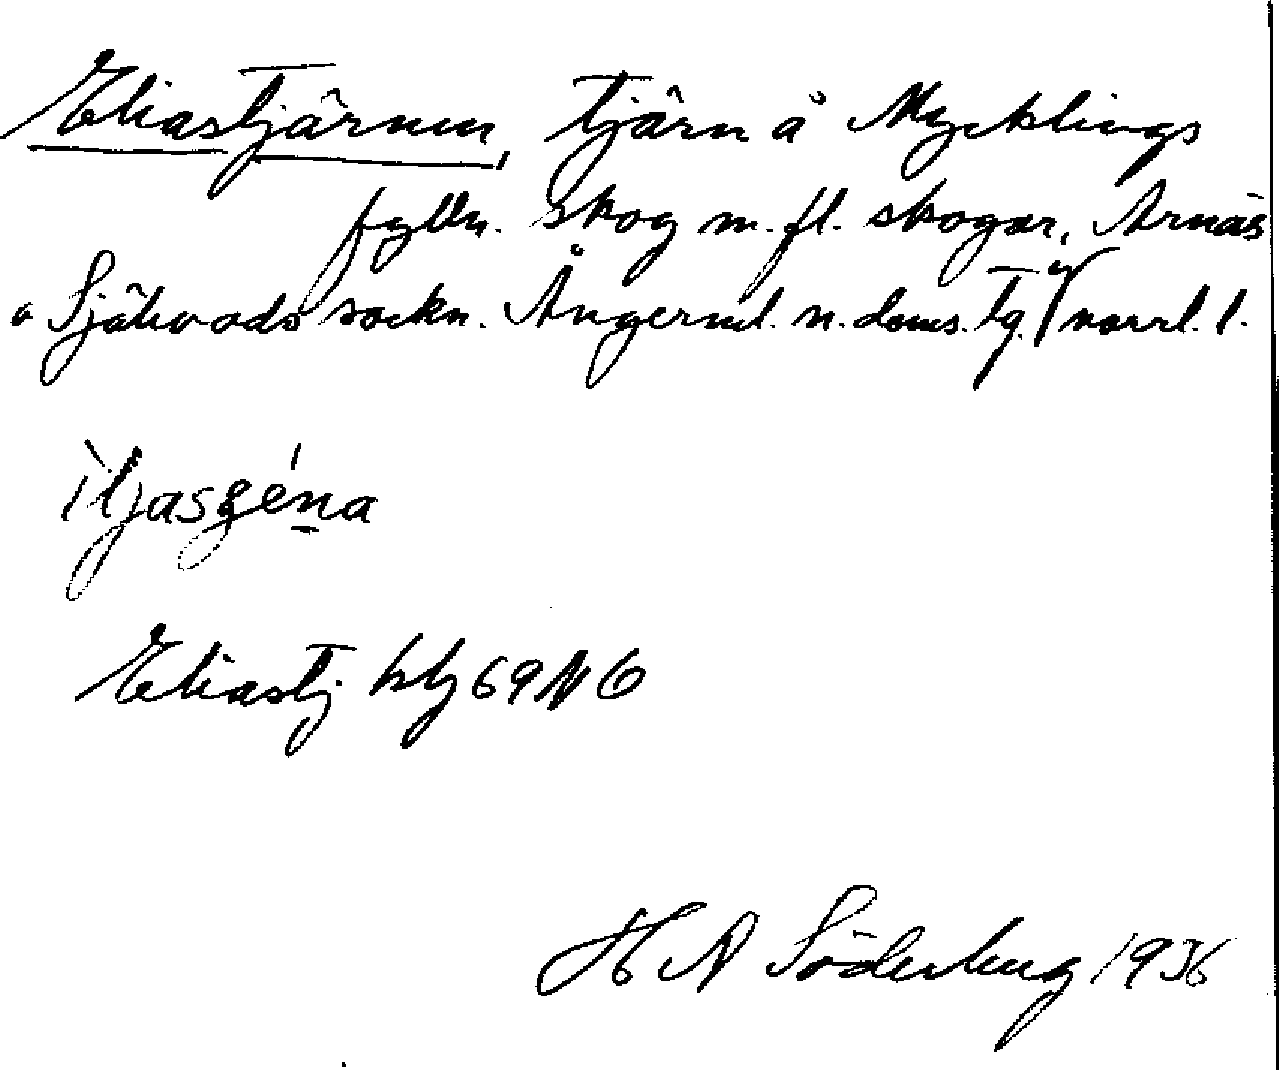 Eliastjärnen, tjärn å Mycklings
fgbv. skog m. fl. skogar, Arnäs
o Själevads sockn. Ångerml. n. doms. tg. y norrl. l.
Eliastj kbl 69 N 6
H A Söderberg 1936